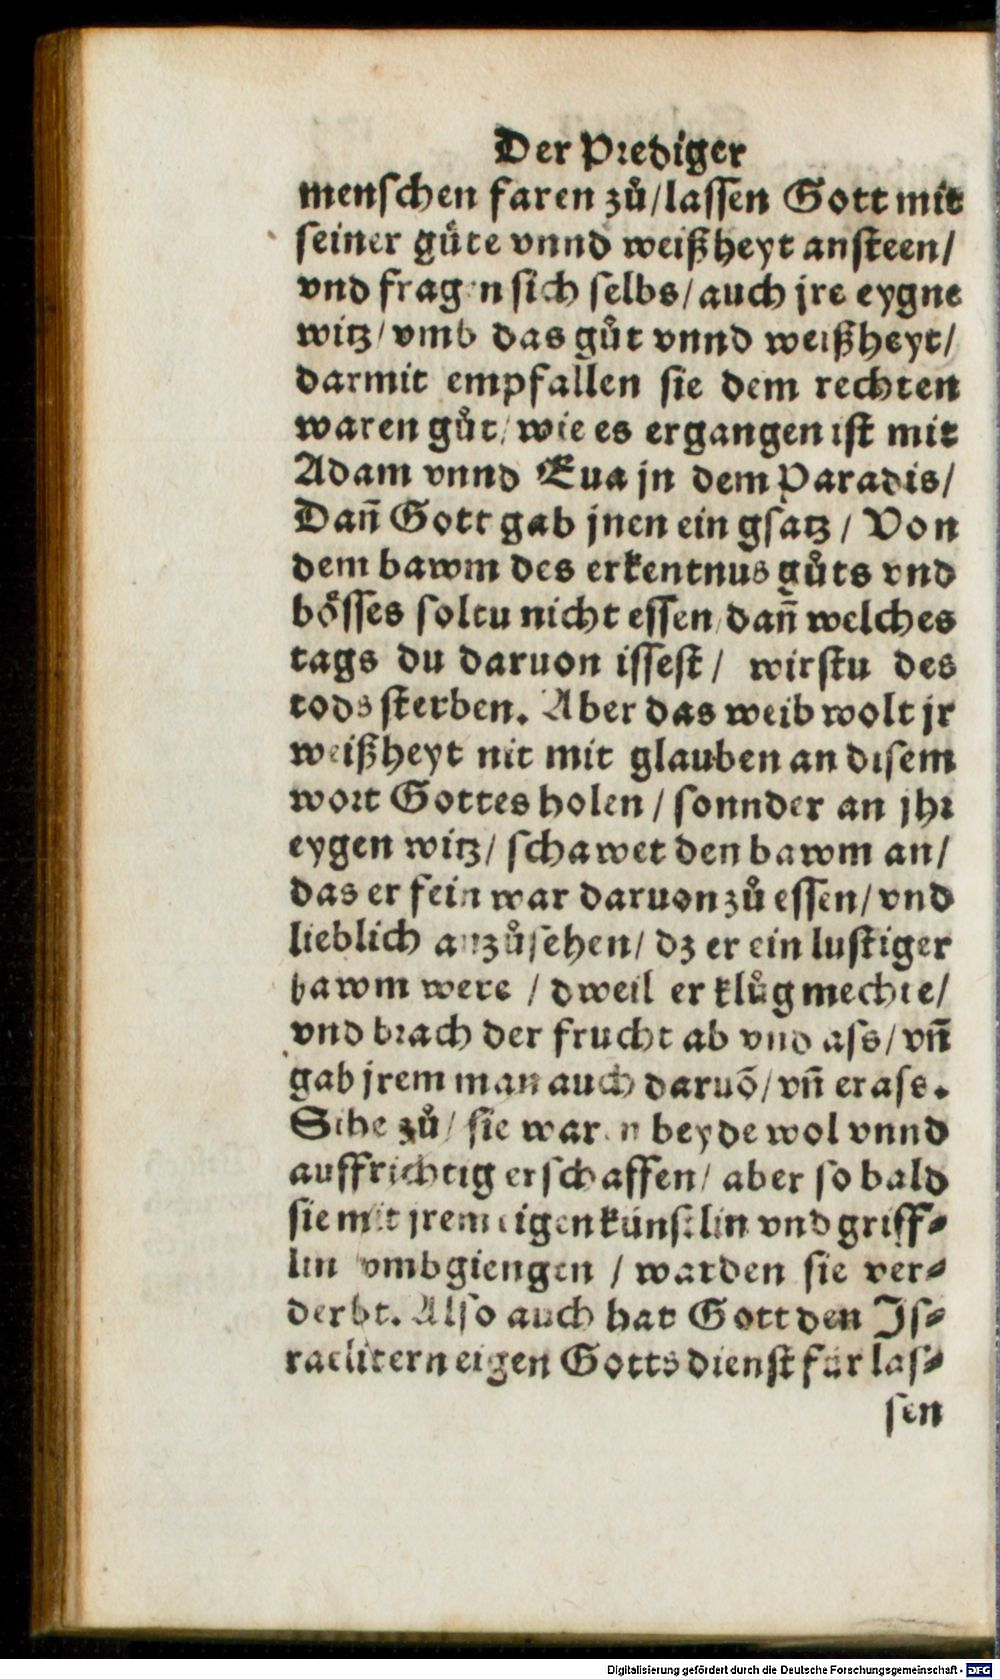 Der Prediger
menschen faren zů/lassen Gott mit
seiner gůte vnnd weißheyt ansteen/
vnd fragen sich selbs/auch jre eygne
witz/vmb das gůt vnnd weißheyt/
darmit empfallen sie dem rechten
waren gůt/wie es ergangen ist mit
Adam vnnd Eua jn dem Paradis/
Dañ Gott gab jnen ein gsatz/Von
dem bawm des erkentnus gůts vnd
bösses soltu nicht essen/dañ welches
tags du daruon issest/ wirstu des
tods sterben. Aber das weib wolt jr
weißheyt nit mit glauben an disem
wort Gottes holen/sonnder an jhr
eygen witz/schawet den bawm an/
das er fein war daruon zů essen/vnd
lieblich anzůsehen/dz er ein lustiger
bawm were/dweil er klůg mechte/
vnd brach der frucht ab vnd ass/vñ
gab jrem man auch daruõ/vñ er ass.
Sihe zů/sie waren beyde wol vnnd
auffrichtig erschaffen/aber so bald
sie mit jrem eigen künstlin vnd griff⸗
lin vmbgiengen/warden sie ver⸗
derbt. Also auch hat Gott den Is⸗
raelitern eigen Gottsdienst für las⸗
sen
Digitalisierung gefördert durch die Deutsche Forschungsgemeinschaft - DFG